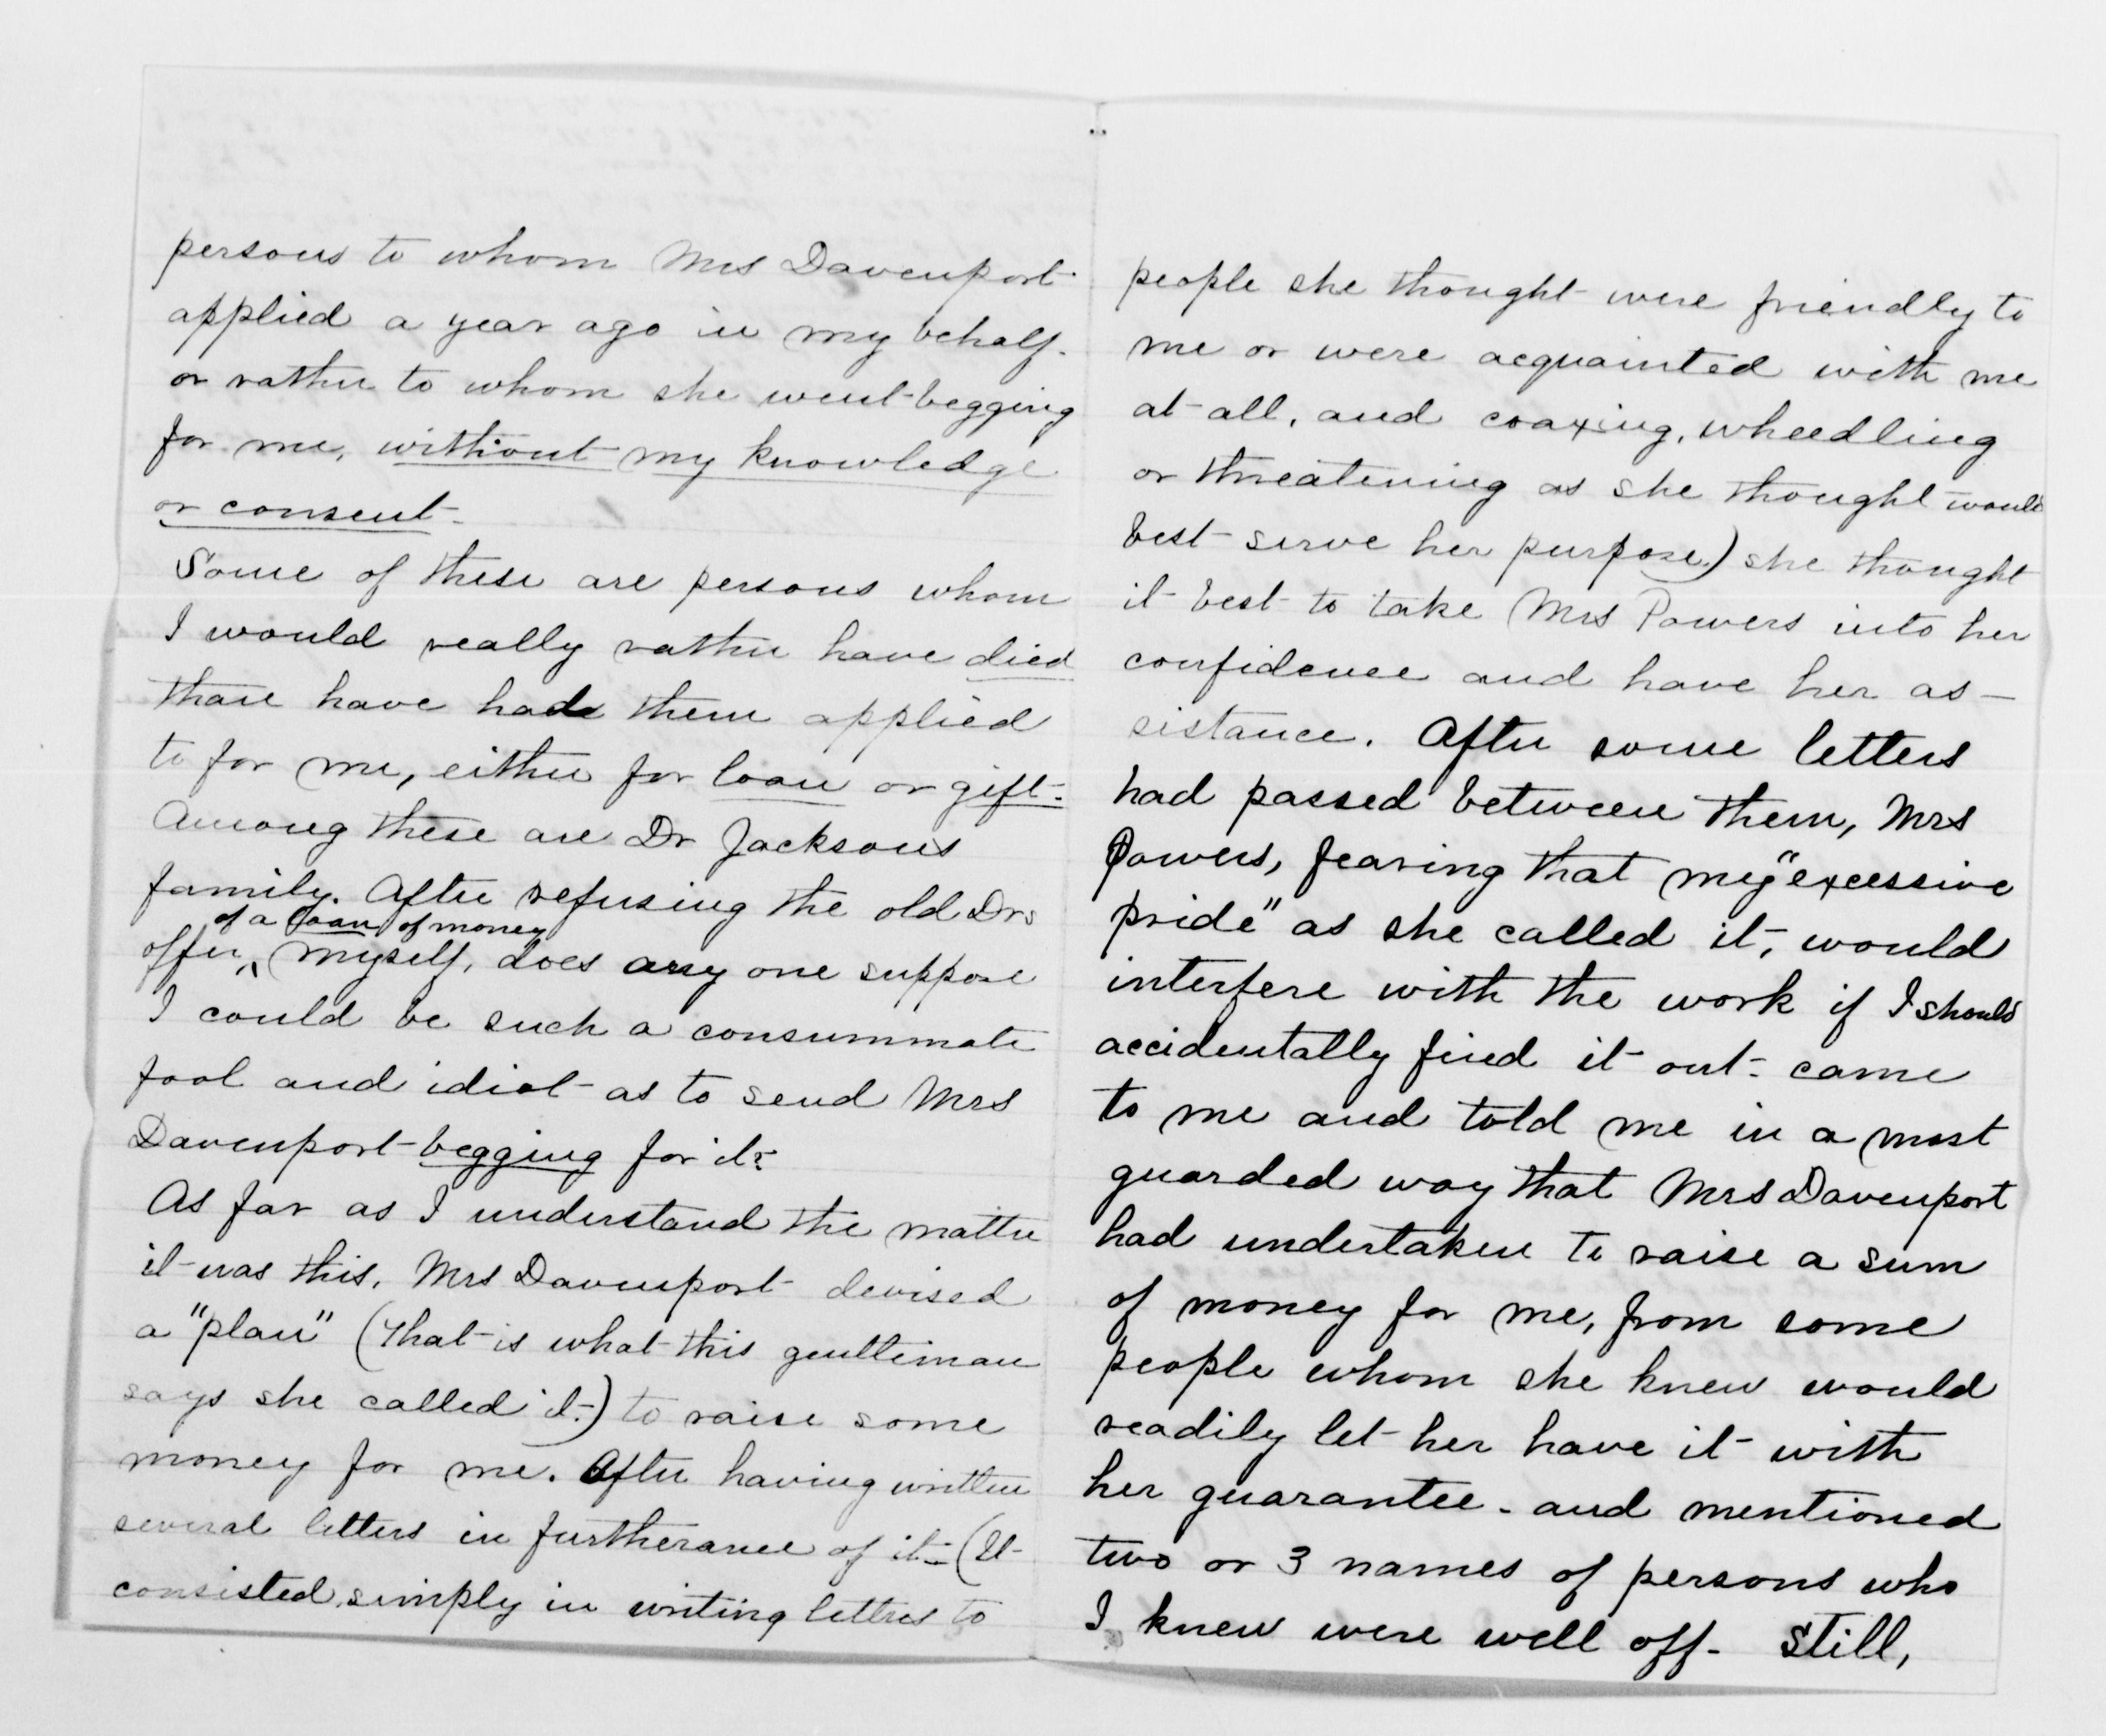 persons to whom Mrs Davenport
applied a year ago in my behalf.
or rather to whom she went begging
for me, without my knowledge
or consent.
Some of these are persons whom
I would really rather have died
than have had them applied
to for me, either for loan or gift.
Among these are Dr Jacksons
family. After refusing the old Drs
of a loan of money
offer, myself, does any one suppose
I could be such a consummate
fool and idiot as to send Mrs
Davenport begging for it?
As far as I understand the matter
it was this. Mrs Davenport devised
a "plan" (that is what this gentleman
says she called it.) to raise some
money for me. After having written
several letters in furtherance of it - (It
consisted simply in writing letters to
people she thought were friendly to
me or were acquainted with me
at all, and coaxing, wheedling
or threatening as she thought would
best serve her purpose.) she thought
it best to take Mrs Powers into her
confidence and have her as-
sistance. After some letters
had passed between them, Mrs
Powers, fearing that my "excessive
pride" as she called it, would
interfere with the work if I should
accidentally find it out - came
to me and told me in a most
guarded way that Mrs Davenport
had undertaken to raise a sum
of money for me, from some
people whom she knew would
readily let her have it with
her guarantee - and mentioned
two or 3 names of persons who
I knew were well off - Still,